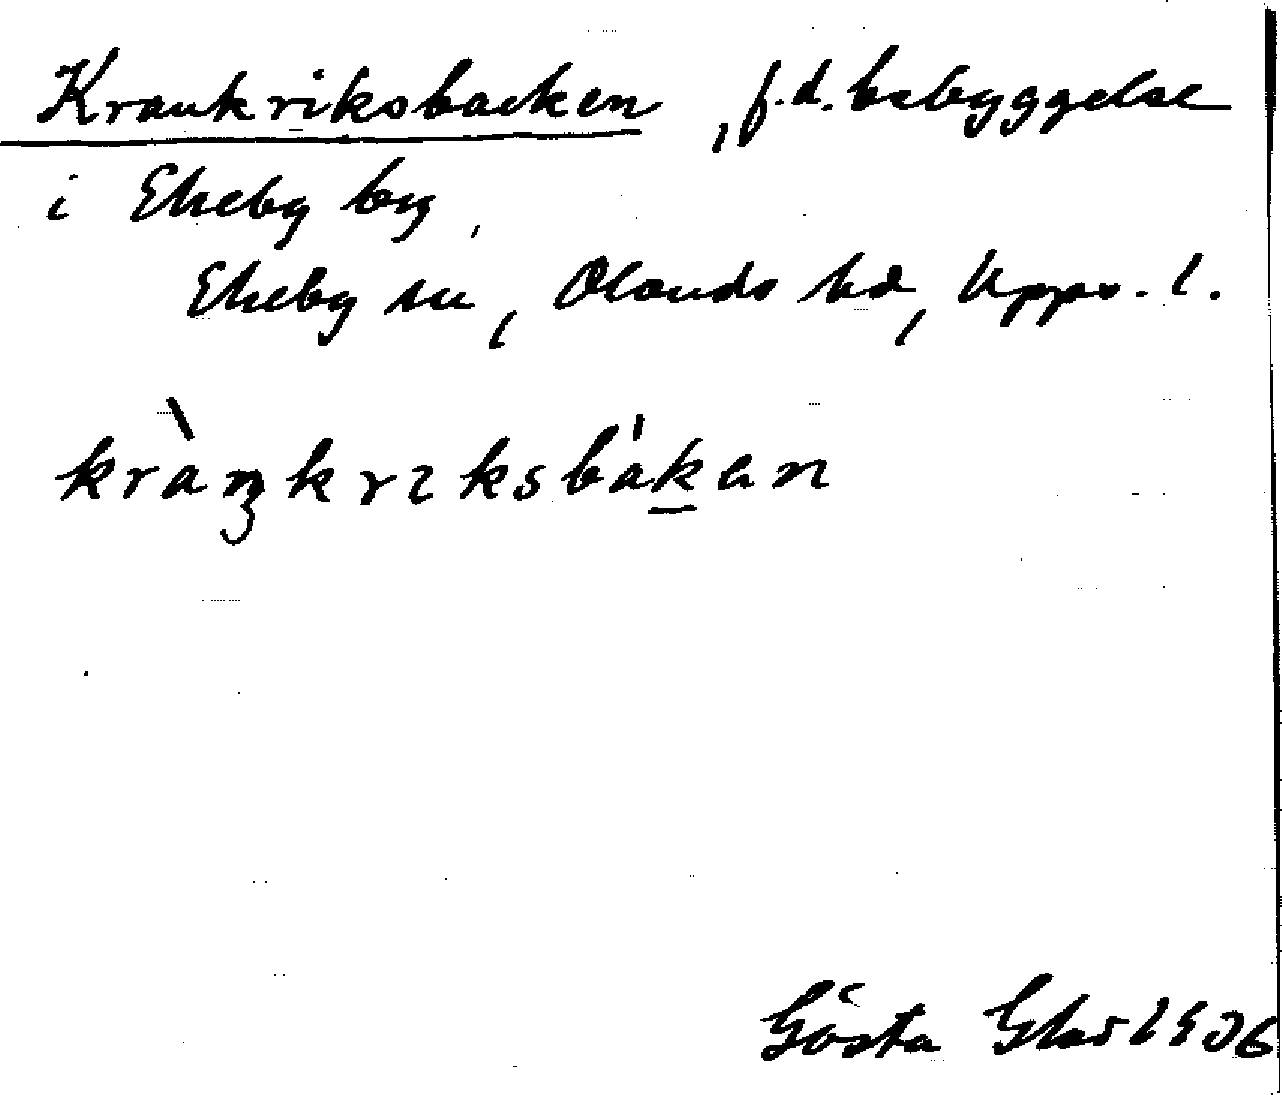 Krankriksbacken, f.d. bebyggelse
i Ekeby by,
Ekeby sn, Olands hd, Upps. l.
kràŋkrıksbákan
Gösta Glas 1906